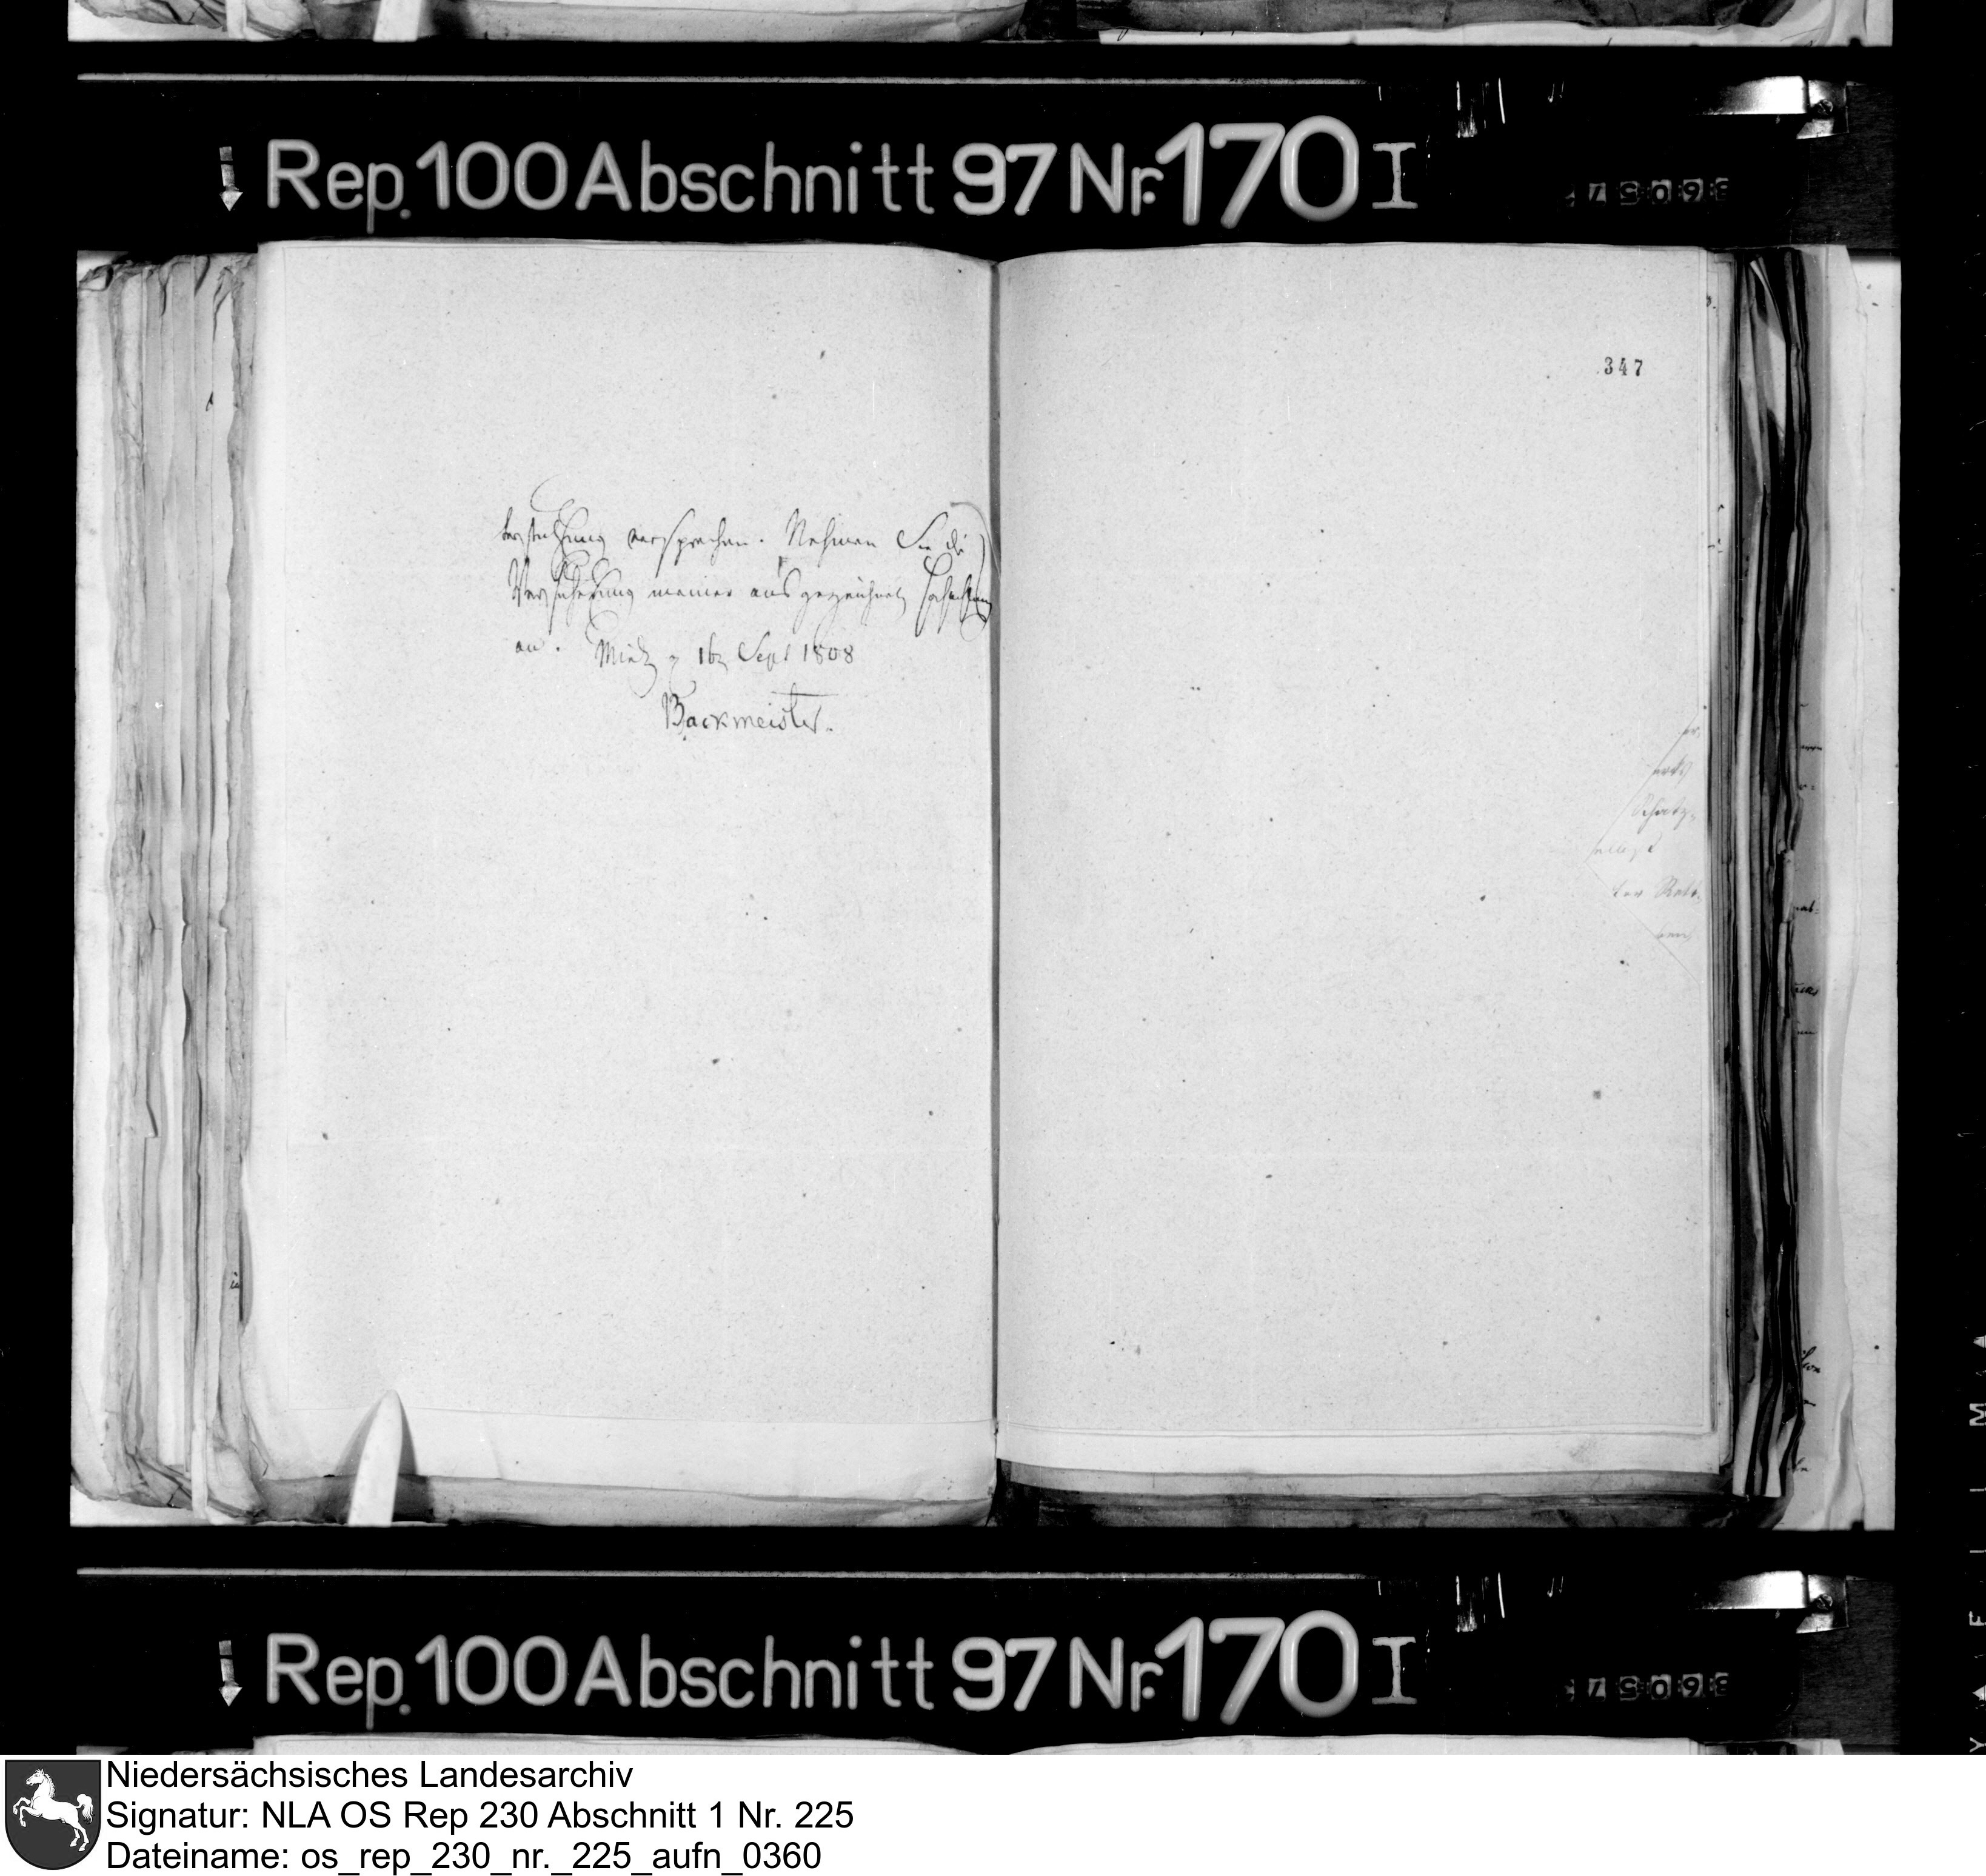 Rep. 100 Abschnitt 97 Nr. 170 I
347
terstützung versprechen. Nehmen Sie die
Versicherung meiner ausgezeichneten Hochachtung
an. 16 Sept 1808
Backmeister.
Schatz-
der Rath
Rep. 100 Abschnitt 97 Nr. 170 I
Niedersächsisches Landesarchiv
Signatur: NLA OS Rep 230 Abschnitt 1 Nr. 225
Dateiname: os_rep_230_nr._225_aufn_0360